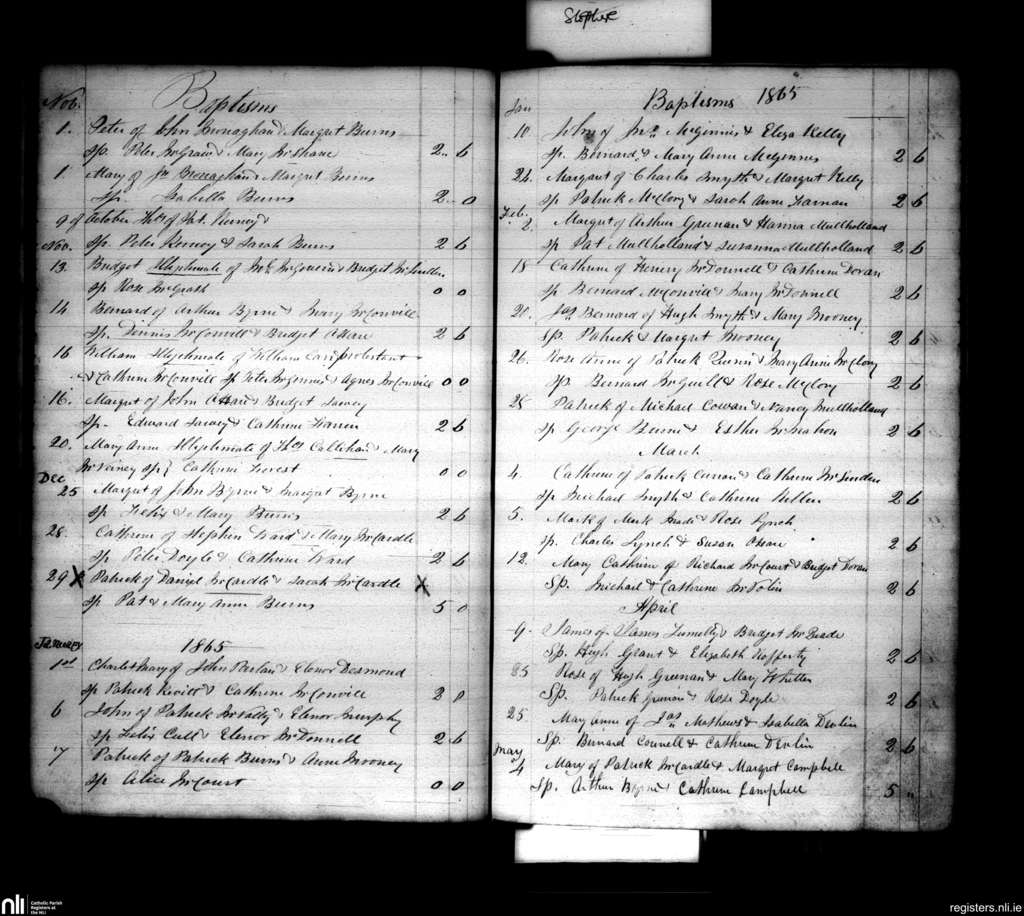 Stephen
Nov. Baptisms
1. Peter of John Monaghan & Margret Burns
Sp. Peter McGrane & Mary McShane 2 .. 6
1 Mary of Jn Monaghan & Margret Burns
Sp. Isabella Burns 2 .. 0
9 of October Thos of Pat. &
Nov. Sp. Peter & Sarah Burns 2 6
13. Bridget Illegitimate of & Bridget
Sp Rose McGrath 0 0
14 Bernard of Arthur Byrne & Mary McConvill
Sp. Dennis McConvill & Bridget O'Hare 2 6
16 William Illegitimate of William Carr protestant
& Cathrine McConvill Sp Peter McGinnis & Agnes McConvill 0 0
16. Margret of John O'Hare & Bridget
Sp. Edward & Cathrine 2 6
20. Mary Anne Illegitimate of Thos Callehan & Mary
Sp Cathrine Forest 0 0
Dec
25 Margret of John Byrne & Margret Byrne
Sp Felix & Mary Burns 2 6
28. Cathrine of Stephen Ward & Mary McCardle
Sp Peter Doyle & Cathrine Ward 2 6
29 X Patrick of Daniel McCardle & Sarah McCardle X
Sp Pat & Mary Anne Burns 5 0
January 1865
1st Charles Mary of John Parlan & Elenor Desmond
Sp Patrick & Cathrine McConvill 2 0
6 John of Patrick McNally & Elenor Murphy
Sp Felix Cull & Elenor McDonnell 2 6
7 Patrick of Patrick Burns & Anne Mooney
Sp Alice McCourt 0 0
Jan Baptisms 1865
10 John of Jno McGinnis & Eliza Kelly
Sp. Bernard & Mary Anne McGinnes 2 6
22. Margaret of Charles Smyth & Margret Kelly
Sp Patrick McClory & Sarah Anne 2 6
Feb.
2. Margret of Arthur Greenan & Hanna Mullholland
Sp Pat Mullholland & Susanna Mullholland 2 6
18 Cathrine of Henery McDonnell & Cathrine Doran
Sp Bernard McConvill & Mary McDonnell 2 6
20. Jas Bernard of Hugh Smyth & Mary Mooney
Sp. Patrick & Margret Mooney 2 6
26. Rose Anne of Patrick Quinn & Mary Anne McClory
Sp. Bernard McGuill & Rose McClory 2 6
25 Patrick of Michael Cowan & Nancy Mullholland
Sp George Burns & Esther McMahon 2 6
March
4. Cathrine of Patrick Curran & Cathrine
Sp Michael Smyth & Cathrine 2 6
5. Mark of Mark & Rose Lynch
Sp. Charles Lynch & Susan O'Hare 2 6
12. Mary Cathrine of Richard McCourt & Bridget Doran
Sp. Michael & Cathrine 2 6
April
9. James of James & Bridget
Sp. Hugh Grant & Elizabeth Rafferty 2 6
Rose of Hugh Greenan & Mary Whitten
Sp. Patrick & Rose Doyle 2 6
25 Mary Anne of Jas Mathews & Isabella Devlin
Sp. Bernard Connell & Cathrine Devlin 2 6
May
4 Mary of Patrick McCardle & Margret Campbell
Sp. Arthur Byrne & Cathrine Campbell 5 "
nli Catholic Parish
Registers at
the NLI
registers.nli.ie